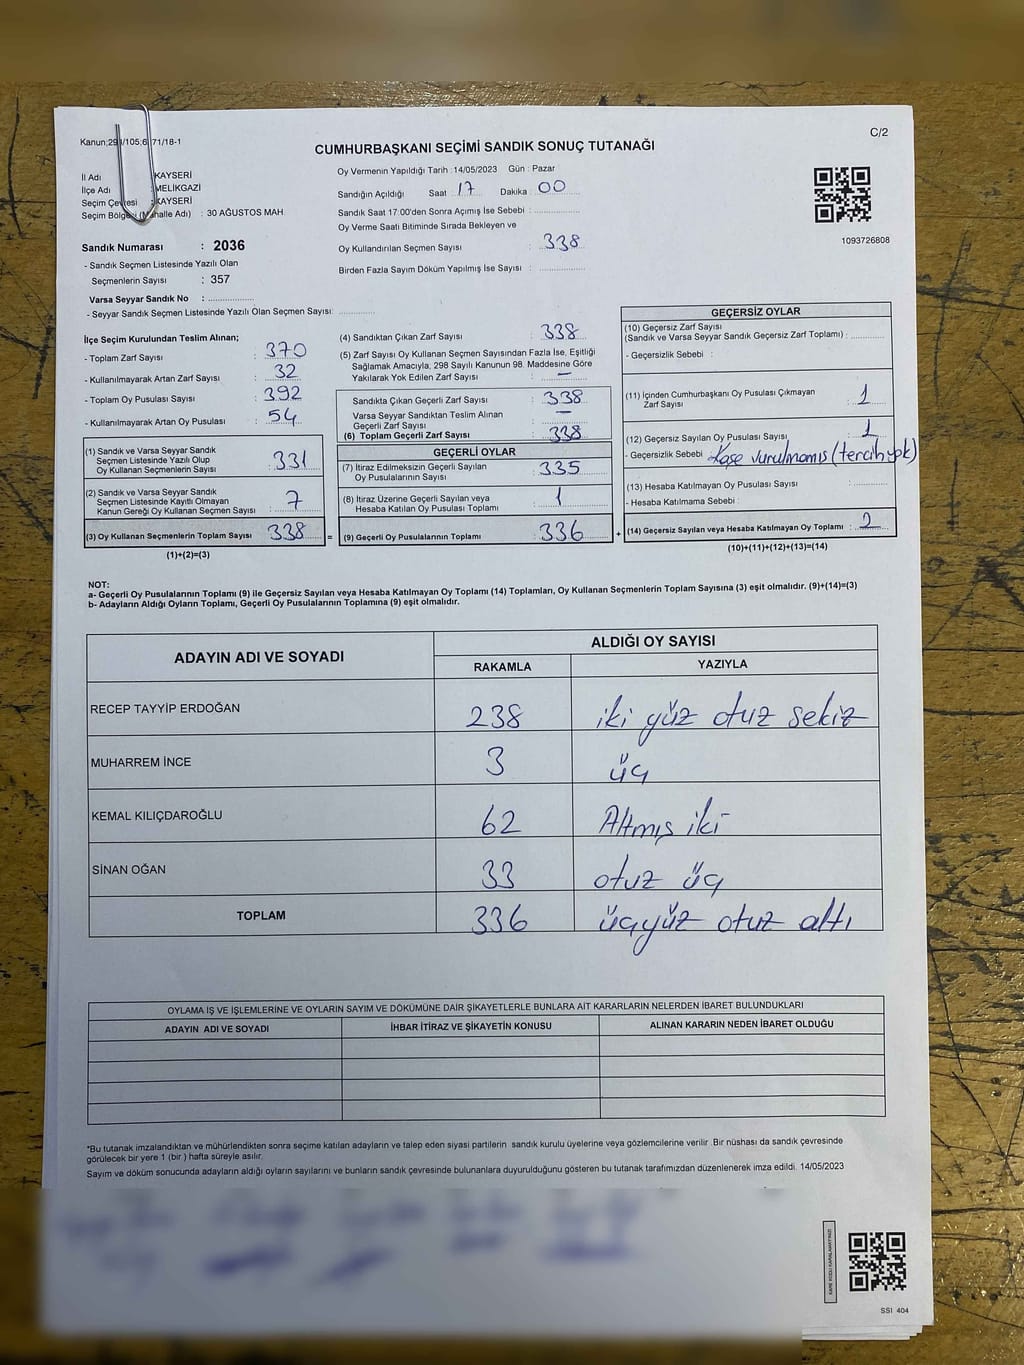 Kanun;29 /105;6 71/18-1
C/2
CUMHURBAŞKANI SEÇİMİ SANDIK SONUÇ TUTANAĞI
İl Adı : KAYSERİ
İlçe Adı : MELİKGAZİ
Seçim Çevresi : KAYSERİ
Seçim Bölgesi (Mahalle Adı) : 30 AĞUSTOS MAH
Sandık Numarası : 2036
- Sandık Seçmen Listesinde Yazılı Olan
Seçmenlerin Sayısı : 357
Varsa Seyyar Sandık No : ................
- Seyyar Sandık Seçmen Listesinde Yazılı Olan Seçmen Sayısı: .............
Oy Vermenin Yapıldığı Tarih :14/05/2023 Gün : Pazar
Sandığın Açıldığı Saat 17 Dakika 00
Sandık Saat 17:00'den Sonra Açımış İse Sebebi : ................
Oy Verme Saati Bitiminde Sırada Bekleyen ve
Oy Kullandırılan Seçmen Sayısı : 338
Birden Fazla Sayım Döküm Yapılmış İse Sayısı : ................
1093726808
İlçe Seçim Kurulundan Teslim Alınan;
- Toplam Zarf Sayısı : 370
- Kullanılmayarak Artan Zarf Sayısı : 32
- Toplam Oy Pusulası Sayısı : 392
- Kullanılmayarak Artan Oy Pusulası : 54
(1) Sandık ve Varsa Seyyar Sandık
Seçmen Listesinde Yazılı Olup
Oy Kullanan Seçmenlerin Sayısı : 331
(2) Sandık ve Varsa Seyyar Sandık
Seçmen Listesinde Kayıtlı Olmayan
Kanun Gereği Oy Kullanan Seçmen Sayısı : 7
(3) Oy Kullanan Seçmenlerin Toplam Sayısı : 338 =
(1)+(2)=(3)
(4) Sandıktan Çıkan Zarf Sayısı : 338
(5) Zarf Sayısı Oy Kullanan Seçmen Sayısından Fazla İse, Eşitliği
Sağlamak Amacıyla, 298 Sayılı Kanunun 98. Maddesine Göre
Yakılarak Yok Edilen Zarf Sayısı : —
Sandıkta Çıkan Geçerli Zarf Sayısı : 338
Varsa Seyyar Sandıktan Teslim Alınan
Geçerli Zarf Sayısı : —
(6) Toplam Geçerli Zarf Sayısı : 338
GEÇERLİ OYLAR
(7) İtiraz Edilmeksizin Geçerli Sayılan
Oy Pusulalarının Sayısı : 335
(8) İtiraz Üzerine Geçerli Sayılan veya
Hesaba Katılan Oy Pusulası Toplamı : 1
(9) Geçerli Oy Pusulalarının Toplamı : 336 +
GEÇERSİZ OYLAR
(10) Geçersiz Zarf Sayısı
(Sandık ve Varsa Seyyar Sandık Geçersiz Zarf Toplamı) : ............
- Geçersizlik Sebebi :
(11) İçinden Cumhurbaşkanı Oy Pusulası Çıkmayan
Zarf Sayısı : 1
(12) Geçersiz Sayılan Oy Pusulası Sayısı : 1
- Geçersizlik Sebebi : Kaşe vurulmamış (tercih yok)
(13) Hesaba Katılmayan Oy Pusulası Sayısı : ............
- Hesaba Katılmama Sebebi :
(14) Geçersiz Sayılan veya Hesaba Katılmayan Oy Toplamı : 2
(10)+(11)+(12)+(13)=(14)
NOT:
a- Geçerli Oy Pusulalarının Toplamı (9) ile Geçersiz Sayılan veya Hesaba Katılmayan Oy Toplamı (14) Toplamları, Oy Kullanan Seçmenlerin Toplam Sayısına (3) eşit olmalıdır. (9)+(14)=(3)
b- Adayların Aldığı Oyların Toplamı, Geçerli Oy Pusulalarının Toplamına (9) eşit olmalıdır.
ADAYIN ADI VE SOYADI
ALDIĞI OY SAYISI
RAKAMLA YAZIYLA
RECEP TAYYİP ERDOĞAN 238 iki yüz otuz sekiz
MUHARREM İNCE 3 üç
KEMAL KILIÇDAROĞLU 62 Altmış iki
SİNAN OĞAN 33 otuz üç
TOPLAM 336 üçyüz otuz altı
OYLAMA İŞ VE İŞLEMLERİNE VE OYLARIN SAYIM VE DÖKÜMÜNE DAİR ŞİKAYETLERLE BUNLARA AİT KARARLARIN NELERDEN İBARET BULUNDUKLARI
ADAYIN ADI VE SOYADI İHBAR İTİRAZ VE ŞİKAYETİN KONUSU ALINAN KARARIN NEDEN İBARET OLDUĞU
*Bu tutanak imzalandıktan ve mühürlendikten sonra seçime katılan adayların ve talep eden siyasi partilerin sandık kurulu üyelerine veya gözlemcilerine verilir .Bir nüshası da sandık çevresinde
görülecek bir yere 1 (bir ) hafta süreyle asılır.
Sayım ve döküm sonucunda adayların aldığı oyların sayılarını ve bunların sandık çevresinde bulunanlara duyurulduğunu gösteren bu tutanak tarafımızdan düzenlenerek imza edildi. 14/05/2023
KARE KODU KARALAMAYINIZ!
SSI 404